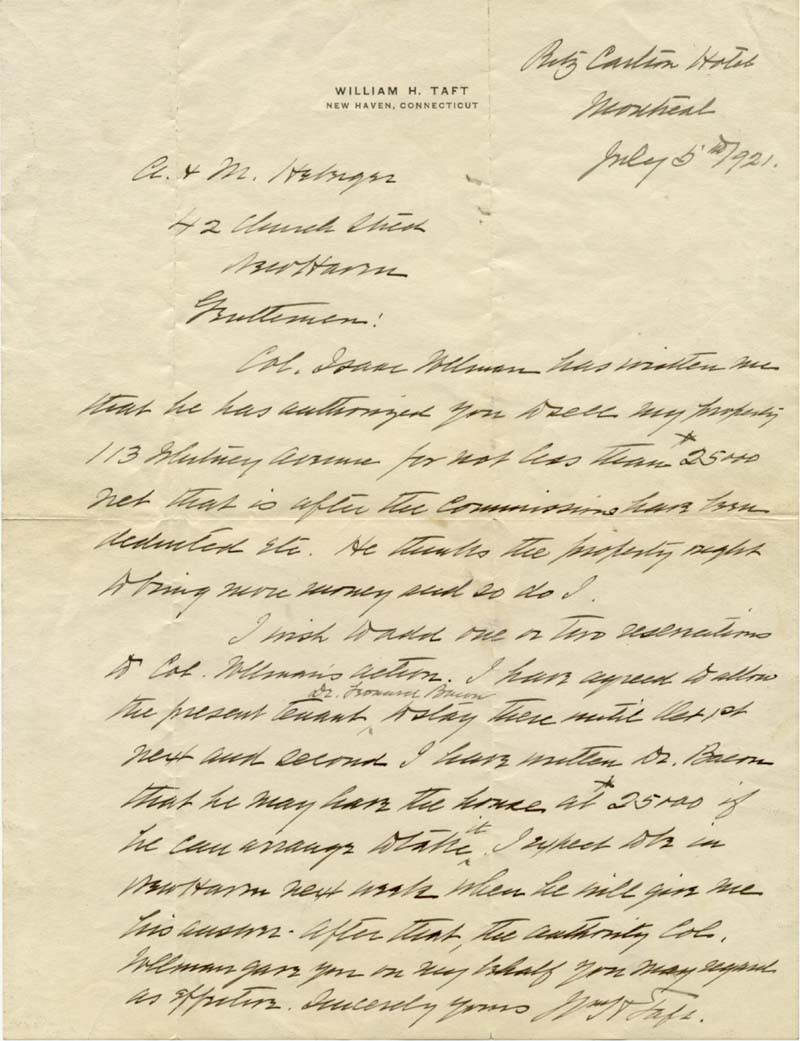 WILLIAM H. TAFT
NEW HAVEN, CONNECTICUT
Ritz Carlton Hotel
Montreal
July 5th 1921.
A. & M. Heberger
42 Church Street
New Haven
Gentlemen!
Col. Isaac Ullman has written me
that he has authorized you to sell my property
113 Whitney Avenue for not less than $25000
net that is after the commissions have been
deducted etc. He thinks the property ought
to bring more money and so do I.
I wish to add one or two reservations
to Col. Ullman's action. I have agreed to allow
Dr. Leonard Bacon
the present tenant ^ to stay there until Oct 1st
next and second I have written Dr. Bacon
that he may have the house at $25000 if
he can arrange to take it. I expect to be in
New Haven next week when he will give me
his answer. After that, the authority Col.
Ullman gave you on my behalf you may regard
as effective. Sincerely yours Wm H Taft.